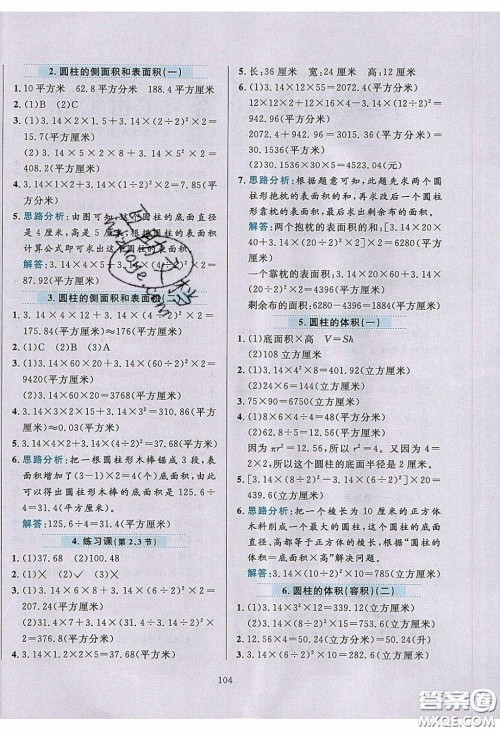 2. 圆柱的侧面积和表面积(一)
1. 10 平方米 62.8 平方分米 188.4 平方厘米
2. (1)B (2)C
3. (1)3.14×2×1.5+3.14×(2÷2)²×2=
15.7(平方厘米)
(2)3.14×5×2×8+3.14×5²×2=
408.2(平方厘米)
4. 3.14×1×2+3.14×(1÷2)²×2=7.85(平方
厘米)
5. 思路分析:由图可知,这个圆柱的底面直径
是 4 厘米,高是 5 厘米,根据圆柱的表面积
计算公式即可求出这个圆柱的表面积。
解答:3.14×4×5+3.14×(4÷2)²×2=
87.92(平方厘米)
3. 圆柱的侧面积和表面积
1. 3.14×4×12+3.14×(4÷2)²×2=
175.84(平方厘米)≈176(平方厘米)
2. (1)C (2)B (3)A
3. (1)3.14×60×20+3.14×(60÷2)²×2=
9420(平方厘米)
(2)3.14×60×20=3768(平方厘米)
4. 3.14×3×2×15+3.14×3²=310.86(平方
厘米)≈0.03(平方米)
5. 3.14×2×4+3.14×(4÷2)²=
6. 思路分析:把一根圆柱形木棒锯成 3 段,表
面积增加了(3−1)×2=4(个)底面积,由此
可以得出圆柱形木棒的底面积是 125.6÷
4=31.4(平方厘米)。
解答:125.6÷4=31.4(平方厘米)
4. 练习课(第 2、3 节)
1. (1)37.68 (2)100.48
2. (1)× (2)√ (3)√ (4)×
3. (1)3.14×3²×2+2×3.14×3×2=
94.2(平方厘米)
(2)9.42×31.4+3.14×(31.4÷3.14÷
2)²×2=452.788(平方厘米)
4. 3.14×1.2×2×5=37.68(平方米)
5. 长:36 厘米 宽:24 厘米 高:12 厘米
6. (1)3.14×12×55=2072.4(平方分米)
12×12×2+12×12×4+3.14×(12÷2)²=
977.04(平方分米)
2072.4+977.04−3.14×(12÷2)²=
2936.4(平方分米)
(2)30.1536×5=150.768(千克)
(3)30.1536×30×5=4523.04(元)
7. 思路分析:根据题意可知,此题先求两个圆
柱形抱枕的表面积,再求改后一个圆柱
形靠枕的表面积,最后求出剩余布的面积。
解答:两个抱枕的表面积和:[3.14×20×
40+3.14×(20÷2)²×2]×2=
6280(平方厘米)
一个靠枕的表面积:3.14×20×60+3.14×
(20÷2)²×2=4396(平方厘米)
剩余布的面积:6280−4396=1884(平方厘米)
5. 圆柱的体积(一)
1. (1)底面积×高 V=Sh
(2)108 立方厘米
2. 3.14×4²×8=401.92(立方厘米)
3. 75×90=6750(立方厘米)
4. (1)62.8÷5=12.56(平方分米)
因为 πr²=12.56,所以 r²=4。又因为
2²=4,所以这个圆柱的底面半径是 2 分米。
5. [3.14×6²−3.14×(6÷2)²×2]×20=
6. 思路分析:把一个棱长为 10 厘米的正方体
木料削成一个最大的圆柱,这个圆柱的底面
直径和高都等于正方体的棱长,根据“圆柱的
体积=底面积×高”解决问题。
解答:3.14×(10÷2)²×10=785(立方厘米)
6. 圆柱的体积(容积)(二)
1. (1)3.14×3²×12=339.12(立方厘米)
(2)3.14×(8÷2)²×8=401.92(立方厘米)
2. 12.56×4=50.24(立方分米)=50.24(升)
3. 3.14×(6÷2)²×10=282.6(立方厘米)
104
答案圈
MXQE.COM